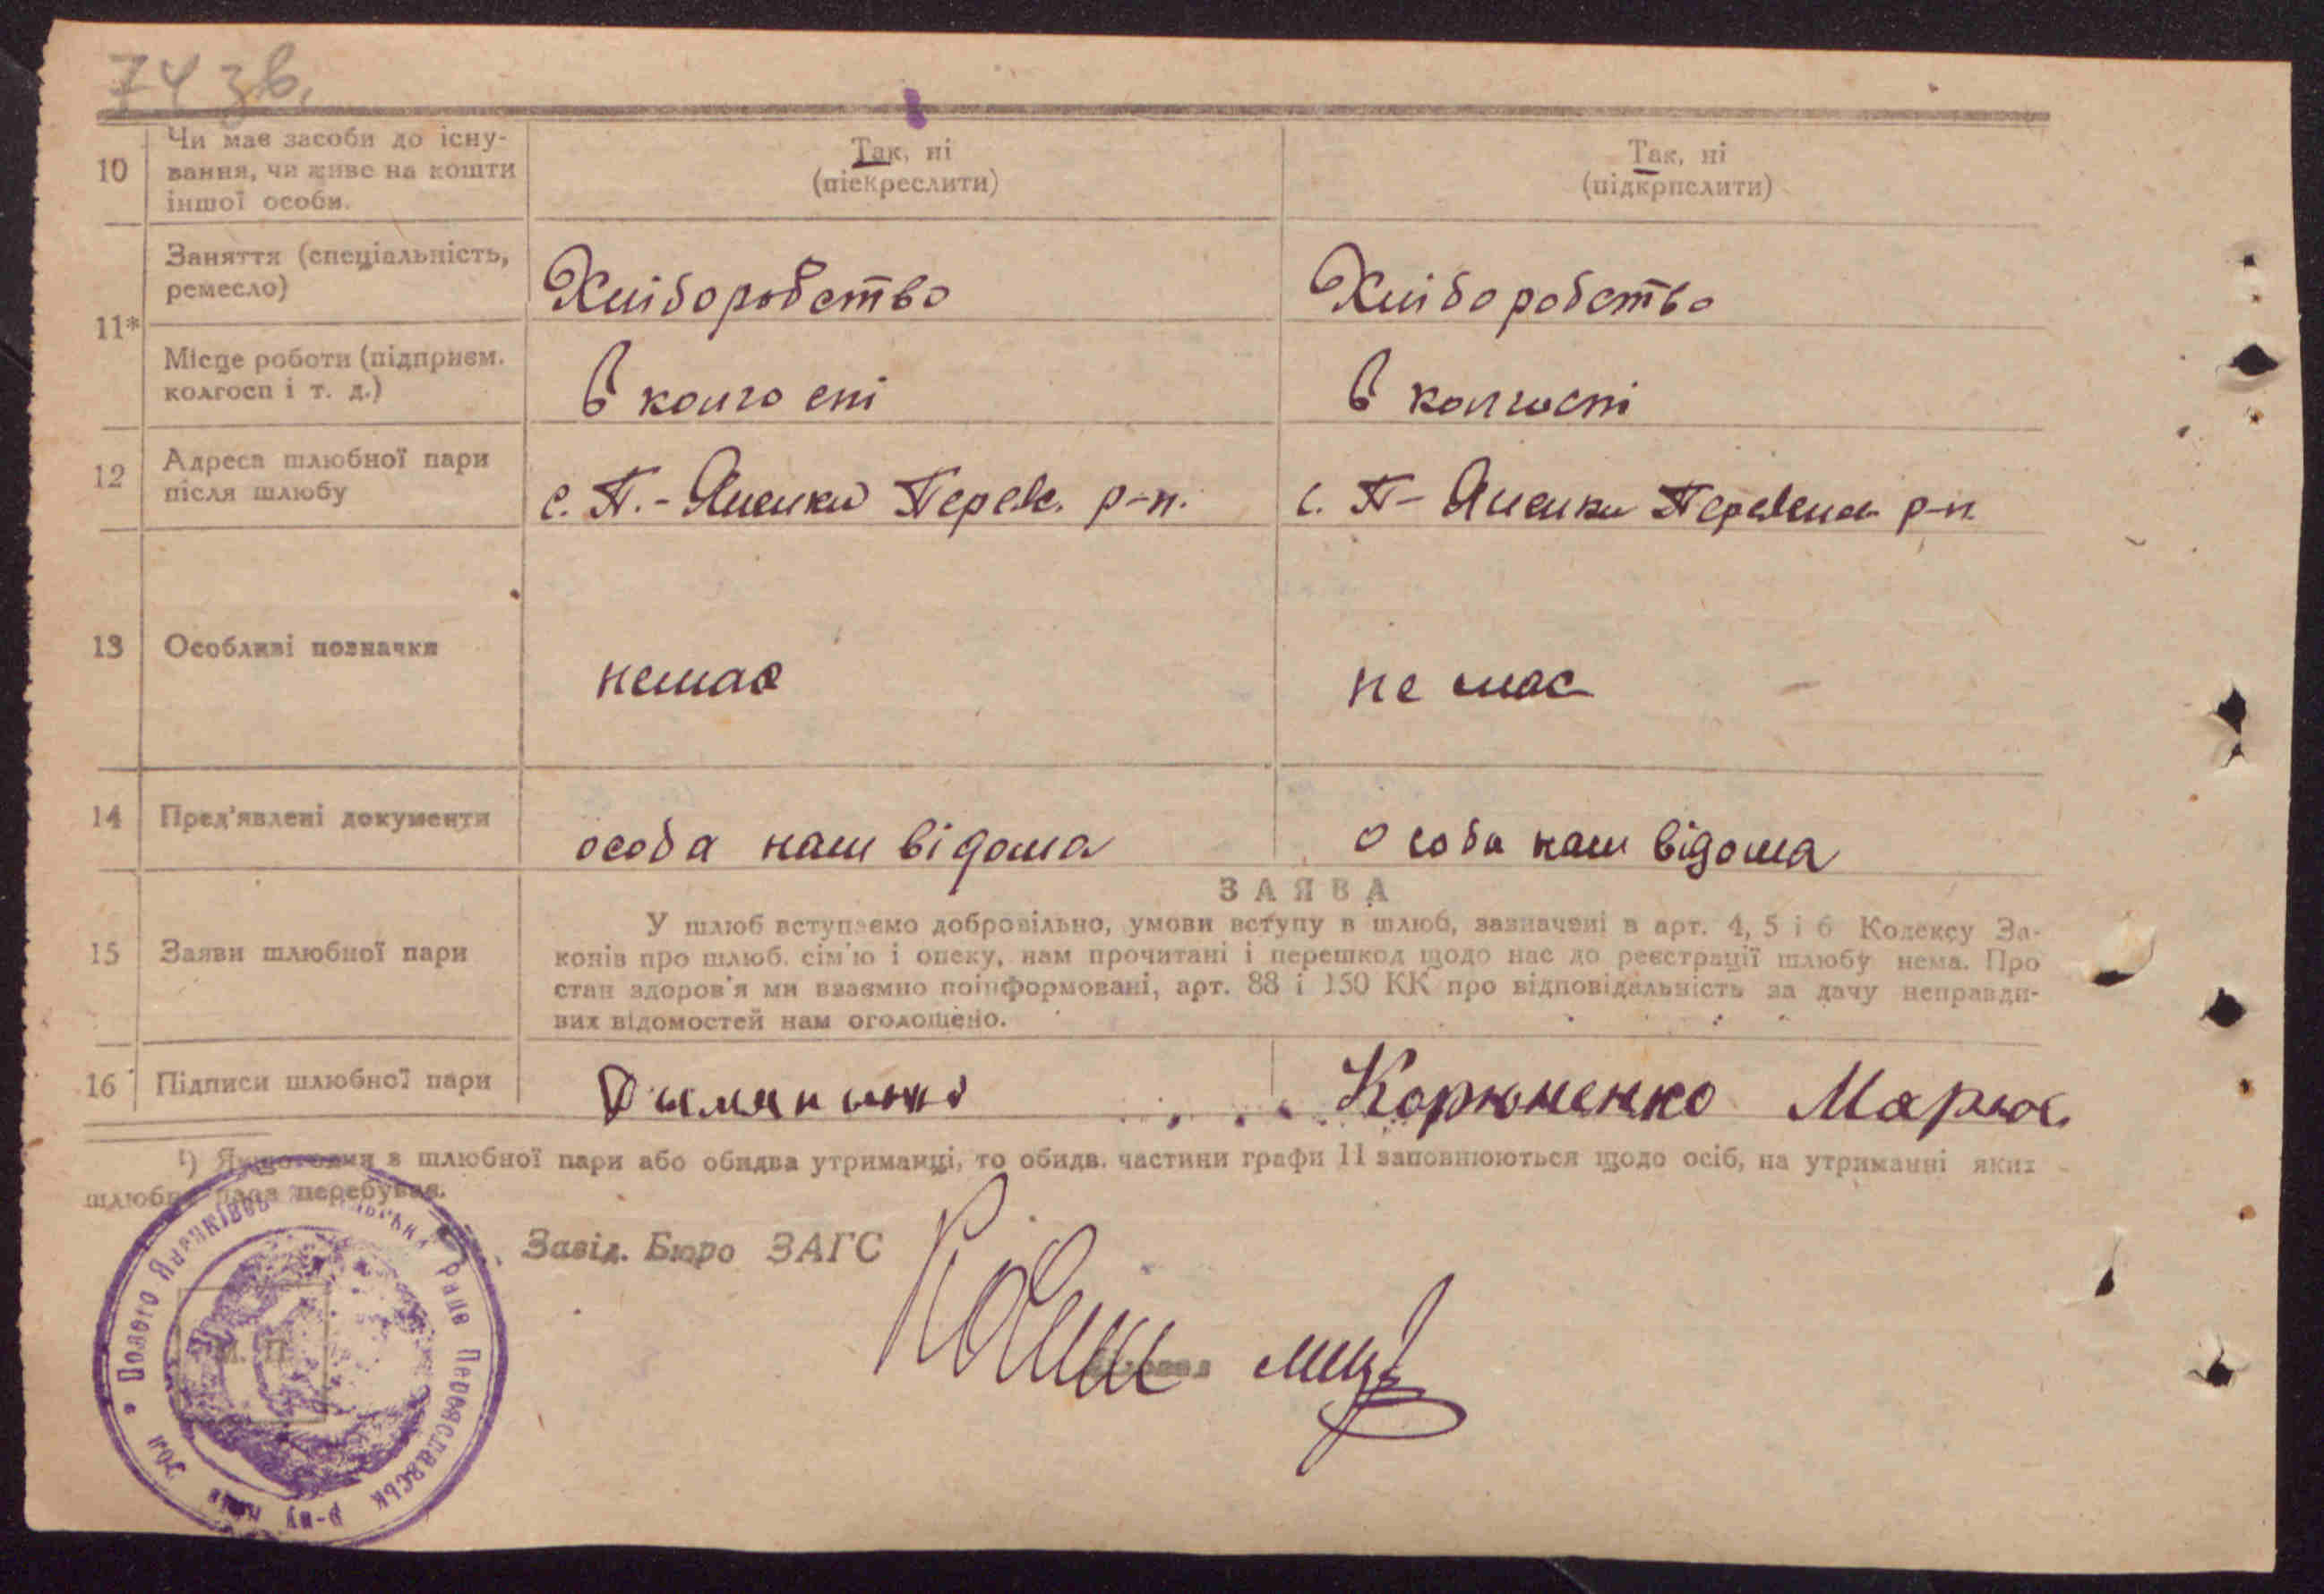 74 зв.
10 Чи має засоби до існу-
вання, чи живе на кошти
іншої особи.
Так, ні
(піекреслити)
Так, ні
(підкрпслити)
11*
Заняття (спеціальність,
ремесло)
Хліборобство
Хліборобство
Місце роботи (підприєм.
колгосп і т. д.)
в колгоспі
в колгоспі
12 Адреса шлюбної пари
після шлюбу
с. П.-Яненки Переясл. р-н.
с. П-Яненки р-н.
13 Особливі позначки
немає
не має
14 Пред'явлені документи
особа нам відома
особа нам відома
15 Заяви шлюбної пари
ЗАЯВА
У шлюб вступаємо добровільно, умови вступу в шлюб, зазначені в арт. 4, 5 і 6 Кодексу За-
конів про шлюб. сім'ю і опеку, нам прочитані і перешкод щодо нас до реєстрації шлюбу нема. Про
стан здоров'я ми взаємно поінформовані, арт. 88 і 150 КК про відповідальність за дачу неправди-
вих відомостей нам оголошено.
16 Підписи шлюбної пари
Корюненко Марія
¹) Якщо один з шлюбної пари або обидва утриманці, то обидв. частини графи 11 заповнюються щодо осіб, на утриманні яких
шлюбна пара перебуває.
Завід. Бюро ЗАГС
М. П.
Полого Яненківсь Рада Переяславськ р-ну